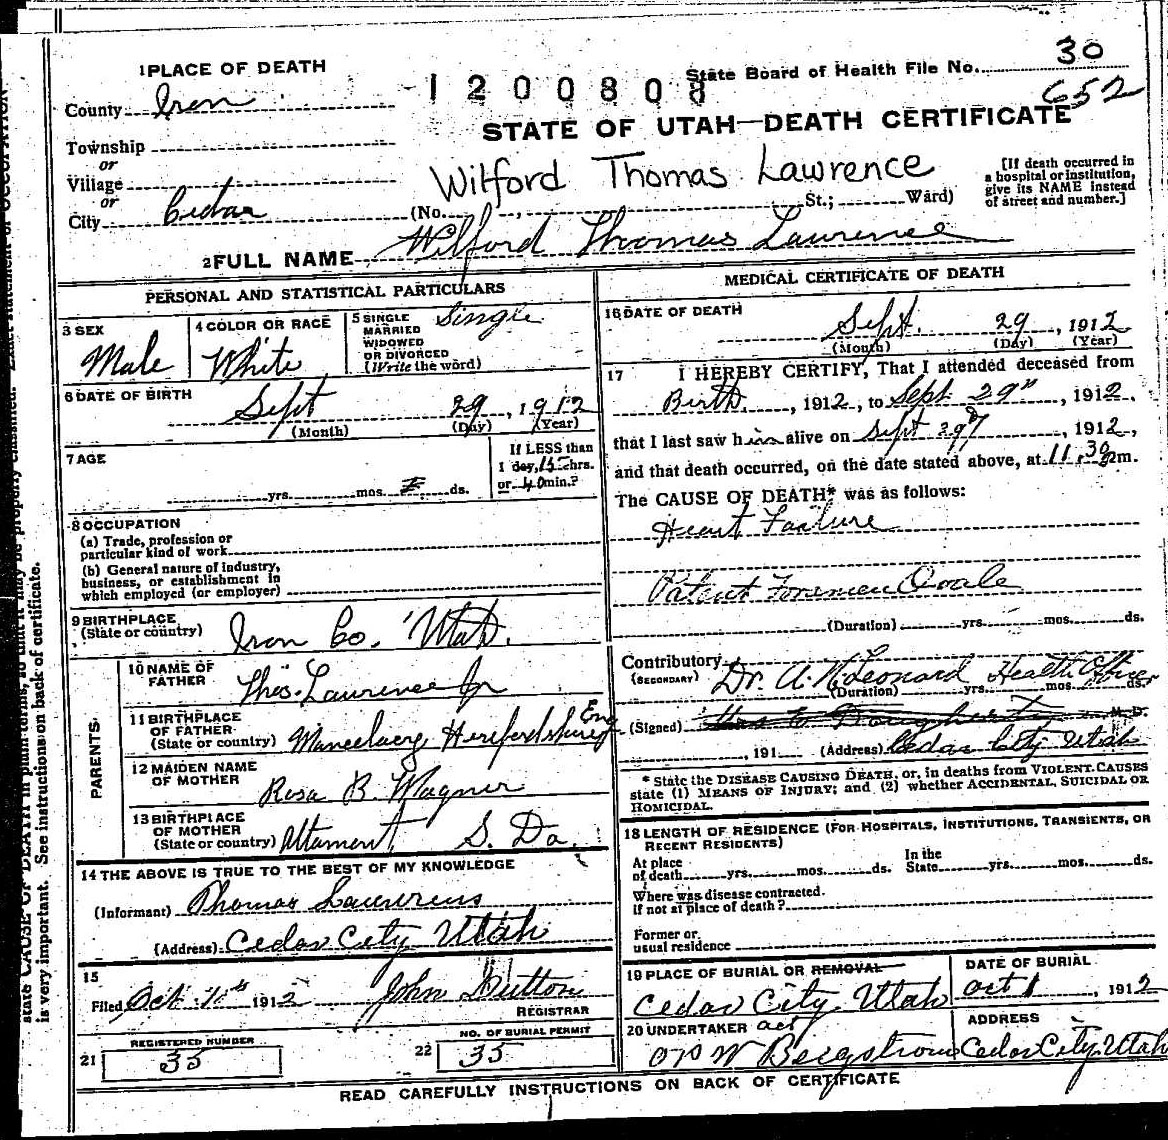 1 PLACE OF DEATH
County Iron
Township
or
Village
or
City Cedar
1200808
State Board of Health File No. 30
652
STATE OF UTAH—DEATH CERTIFICATE
Wilford Thomas Lawrence
(No. , St.; Ward)
[If death occurred in
a hospital or institution,
give its NAME instead
of street and number.]
2 FULL NAME Wilford Thomas Lawrence
PERSONAL AND STATISTICAL PARTICULARS
3 SEX
Male
4 COLOR OR RACE
White
5 SINGLE
MARRIED
WIDOWED
OR DIVORCED
(Write the word)
Single
6 DATE OF BIRTH
Sept 29, 1912
(Month) (Day) (Year)
7 AGE
yrs. mos. ds.
If LESS than
1 day, 15 hrs.
or 40 min.?
8 OCCUPATION
(a) Trade, profession or
particular kind of work
(b) General nature of industry,
business, or establishment in
which employed (or employer)
9 BIRTHPLACE
(State or country) Iron Co. Utah.
PARENTS
10 NAME OF
FATHER Thos. Lawrence Jr
11 BIRTHPLACE
OF FATHER
(State or country) Herefordshire Eng
12 MAIDEN NAME
OF MOTHER Rosa B. Wagner
13 BIRTHPLACE
OF MOTHER
(State or country) Altamont S. Da.
14 THE ABOVE IS TRUE TO THE BEST OF MY KNOWLEDGE
(Informant) Thomas Lawrens
(Address) Cedar City Utah
15
Filed Oct 1912 John
REGISTRAR
REGISTERED NUMBER
21 35
NO. OF BURIAL PERMIT
22 35
MEDICAL CERTIFICATE OF DEATH
16 DATE OF DEATH
Sept. 29, 1912
(Month) (Day) (Year)
17 I HEREBY CERTIFY, That I attended deceased from
Birth, 1912, to Sept 29", 1912,
that I last saw him alive on Sept 29, 1912,
and that death occurred, on the date stated above, at 11.30 pm.
The CAUSE OF DEATH* was as follows:
Heart Failure
Patent Foremen Ovale
(Duration) yrs. mos. ds.
Contributory
(SECONDARY) Dr. A. N. Leonard Health Officer
(Duration) yrs. mos. ds.
(Signed) M. D.
, 191 (Address) Cedar City Utah
* State the DISEASE CAUSING DEATH, or, in deaths from VIOLENT CAUSES
state (1) MEANS OF INJURY; and (2) whether ACCIDENTAL, SUICIDAL OR
HOMICIDAL.
18 LENGTH OF RESIDENCE (FOR HOSPITALS, INSTITUTIONS, TRANSIENTS, OR
RECENT RESIDENTS)
At place
of death yrs. mos. ds.
In the
State yrs. mos. ds.
Where was disease contracted.
if not at place of death?
Former or
usual residence
19 PLACE OF BURIAL OR REMOVAL
Cedar City Utah
DATE OF BURIAL
Oct 1, 1912
20 UNDERTAKER act
W Bergstrom
ADDRESS
Cedar City Utah
READ CAREFULLY INSTRUCTIONS ON BACK OF CERTIFICATE
state CAUSE OF DEATH in plain terms, so that it may be properly classified. Exact statement of OCCUPATION
is very important. See instructions on back of certificate.